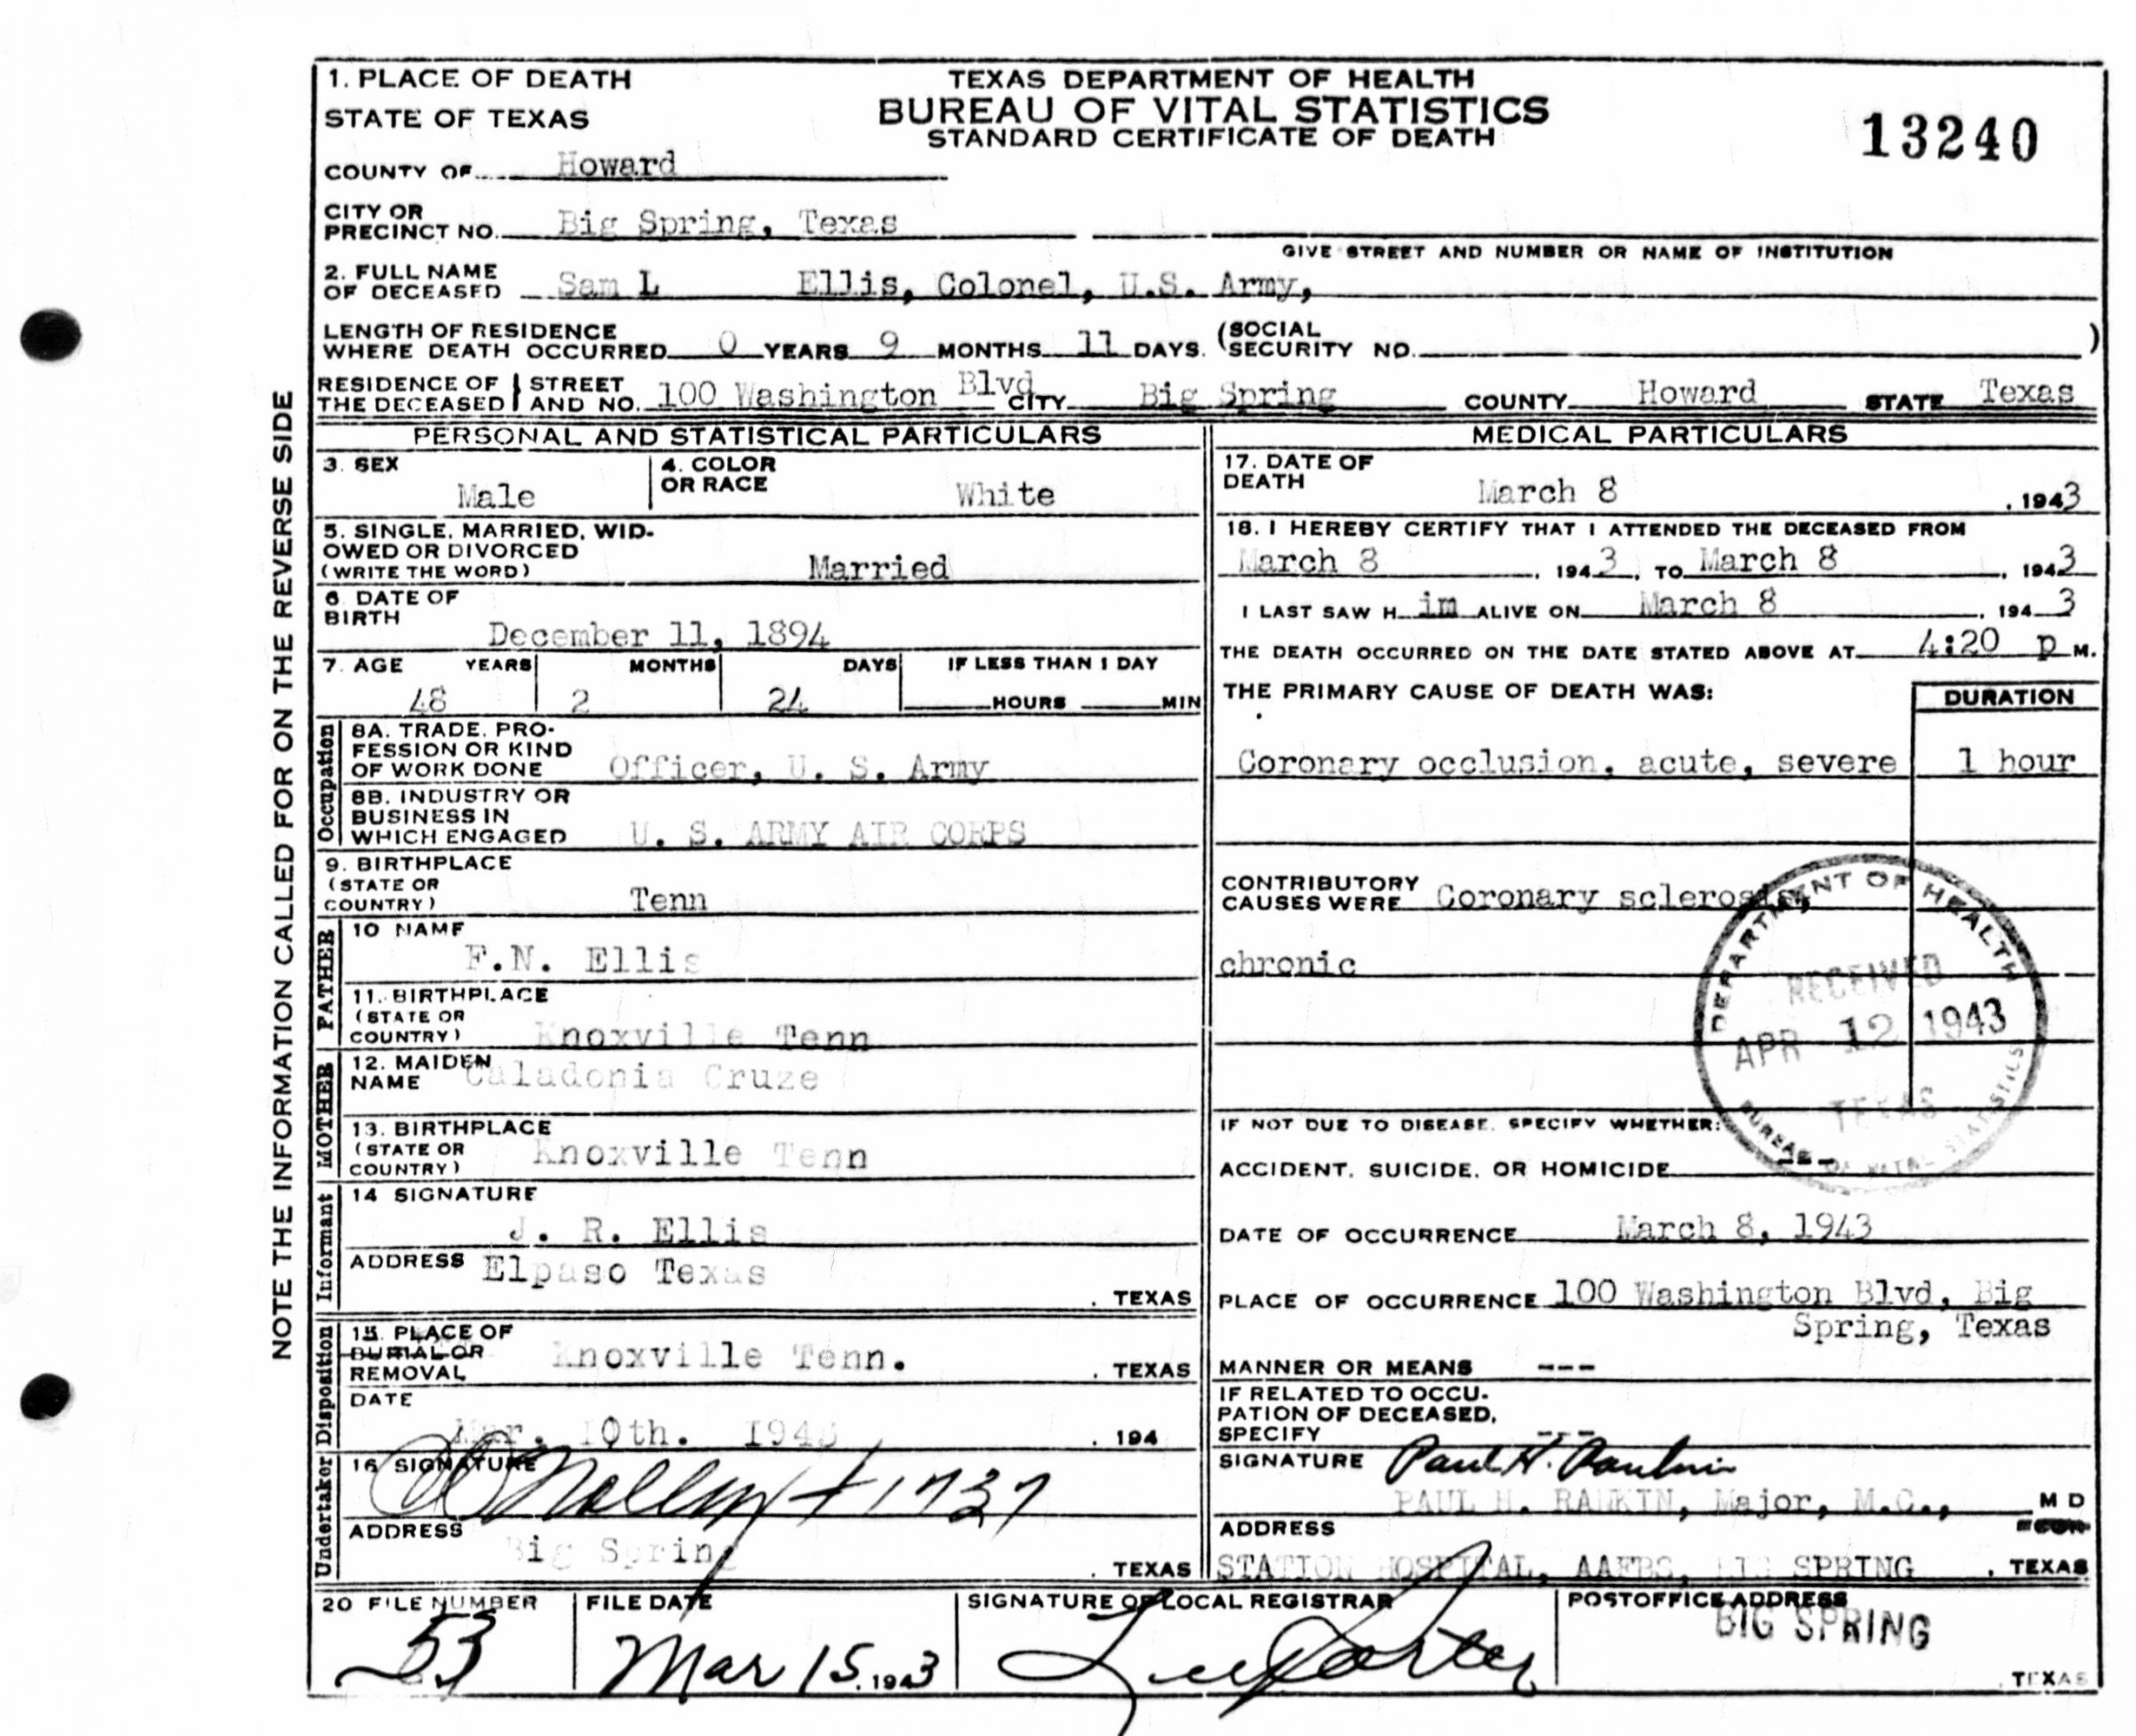 1. PLACE OF DEATH
STATE OF TEXAS
TEXAS DEPARTMENT OF HEALTH
BUREAU OF VITAL STATISTICS
STANDARD CERTIFICATE OF DEATH
13240
COUNTY OF Howard
CITY OR PRECINCT NO. Big Spring, Texas
GIVE STREET AND NUMBER OR NAME OF INSTITUTION
2. FULL NAME OF DECEASED Sam L Ellis, Colonel, U.S. Army,
LENGTH OF RESIDENCE WHERE DEATH OCCURRED 0 YEARS 9 MONTHS 11 DAYS. (SOCIAL SECURITY NO. )
RESIDENCE OF THE DECEASED STREET AND NO. 100 Washington Blvd CITY Big Spring COUNTY Howard STATE Texas
NOTE THE INFORMATION CALLED FOR ON THE REVERSE SIDE
PERSONAL AND STATISTICAL PARTICULARS
3. SEX Male
4. COLOR OR RACE White
5. SINGLE, MARRIED, WID-
OWED OR DIVORCED
(WRITE THE WORD) Married
6. DATE OF BIRTH December 11, 1894
7. AGE YEARS MONTHS DAYS IF LESS THAN 1 DAY
48 2 24 HOURS MIN
Occupation
8A. TRADE, PRO-
FESSION OR KIND
OF WORK DONE Officer, U. S. Army
8B. INDUSTRY OR
BUSINESS IN
WHICH ENGAGED U. S. ARMY AIR CORPS
9. BIRTHPLACE
(STATE OR
COUNTRY) Tenn
FATHER
10 NAME
F.N. Ellis
11. BIRTHPLACE
(STATE OR
COUNTRY) Knoxville Tenn
MOTHER
12. MAIDEN
NAME Caladonia Cruze
13. BIRTHPLACE
(STATE OR
COUNTRY) Knoxville Tenn
Informant
14 SIGNATURE
J. R. Ellis
ADDRESS Elpaso Texas
, TEXAS
Disposition
15. PLACE OF
BURIAL OR
REMOVAL Knoxville Tenn. , TEXAS
DATE
Mar. 10th. 1943 , 194
Undertaker
16 SIGNATURE
ADDRESS
Big Spring , TEXAS
MEDICAL PARTICULARS
17. DATE OF
DEATH March 8 , 1943
18. I HEREBY CERTIFY THAT I ATTENDED THE DECEASED FROM
March 8 , 1943, TO March 8 , 1943
I LAST SAW H im ALIVE ON March 8 , 1943
THE DEATH OCCURRED ON THE DATE STATED ABOVE AT 4:20 p M.
THE PRIMARY CAUSE OF DEATH WAS: DURATION
Coronary occlusion, acute, severe 1 hour
CONTRIBUTORY
CAUSES WERE Coronary sclerosis,
chronic
DEPARTMENT OF HEALTH
RECEIVED
APR 12 1943
TEXAS
BUREAU OF VITAL STATISTICS
IF NOT DUE TO DISEASE, SPECIFY WHETHER:
ACCIDENT, SUICIDE, OR HOMICIDE
DATE OF OCCURRENCE March 8, 1943
PLACE OF OCCURRENCE 100 Washington Blvd, Big
Spring, Texas
MANNER OR MEANS ---
IF RELATED TO OCCU-
PATION OF DECEASED,
SPECIFY ---
SIGNATURE Paul H. Rankin
PAUL H. RANKIN, Major, M.C., M D
ADDRESS
STATION HOSPITAL, AAFBS, BIG SPRING , TEXAS
20 FILE NUMBER
53
FILE DATE
Mar 15, 1943
SIGNATURE OF LOCAL REGISTRAR
Lee Porter
POSTOFFICE ADDRESS
BIG SPRING
, TEXAS